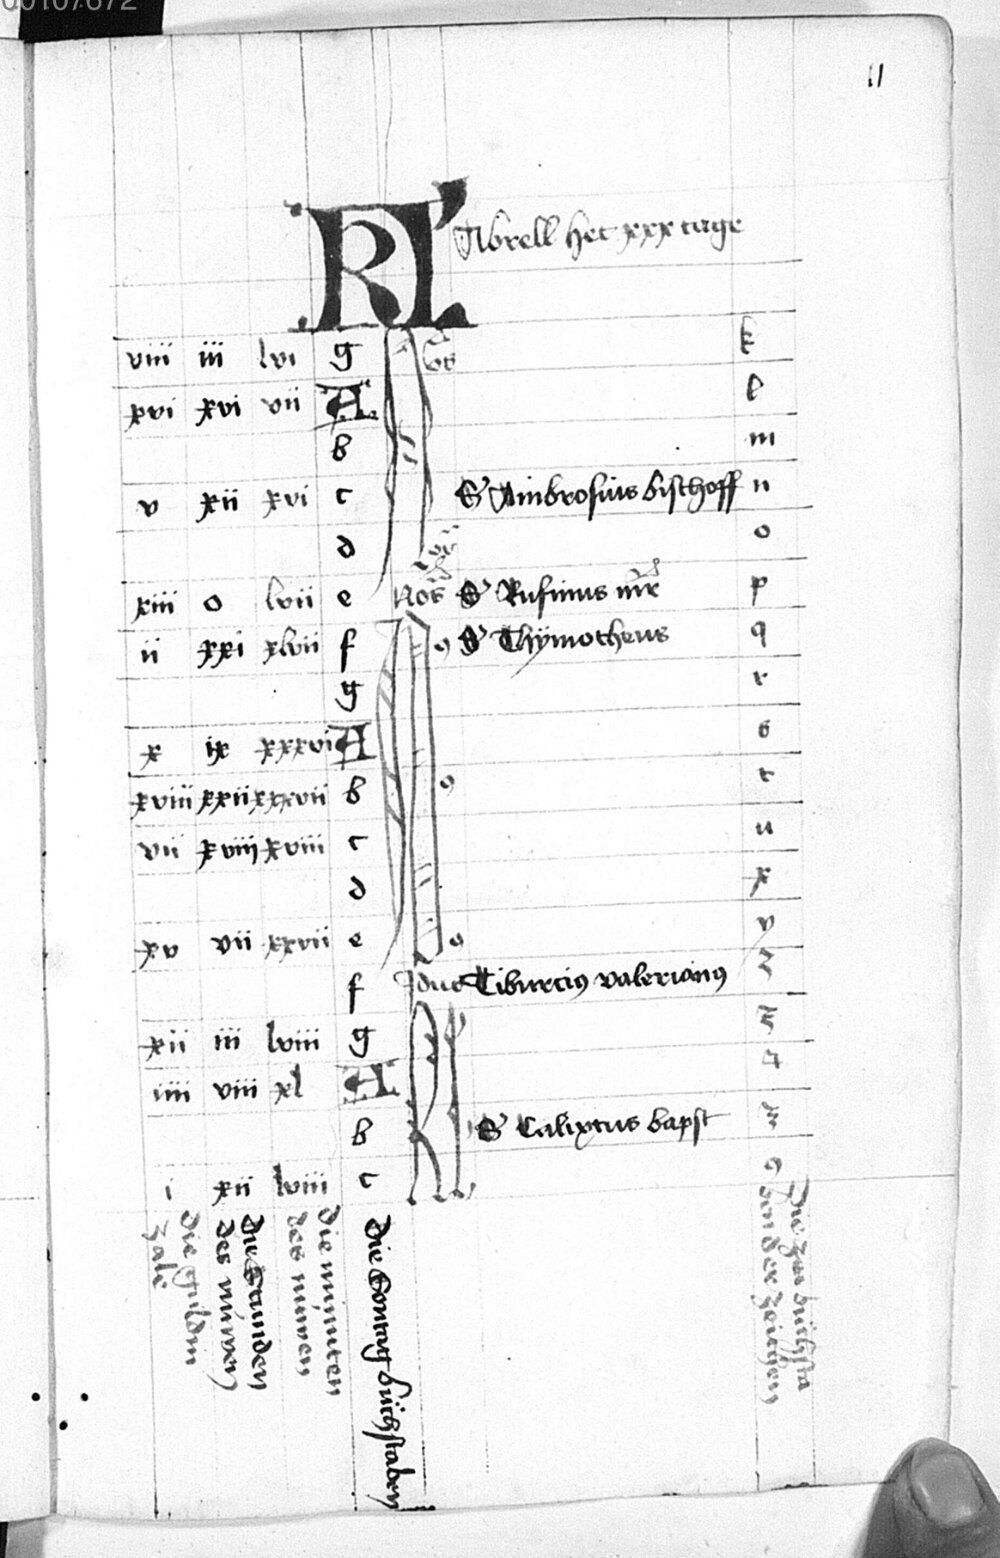 00107672
11
KL Abrell het xxx tage
viii iii lvi g k
xvi xvi vii A l
b m
v xii xvi c S Ambrosius bischoff n
d o
xiii o lvii e Nōs S Rufinus mr̄ p
ii xxi xlvii f S Thÿmotheus q
g r
x ix xxxvi A s
xviii xxii xxxvii b t
vii xviii xviii c u
d x
xv vii xxvii e v
f Jdus Tiburcius valerianus z
xii iii lviii g
iiii viii xl A
b S Calixtus bapst
i xii lviii c 9
die guldin zale
die Stunden des nüwen
die minuten des nuwen
die Sontag büchstaben
die zai büchsta von der zeichen